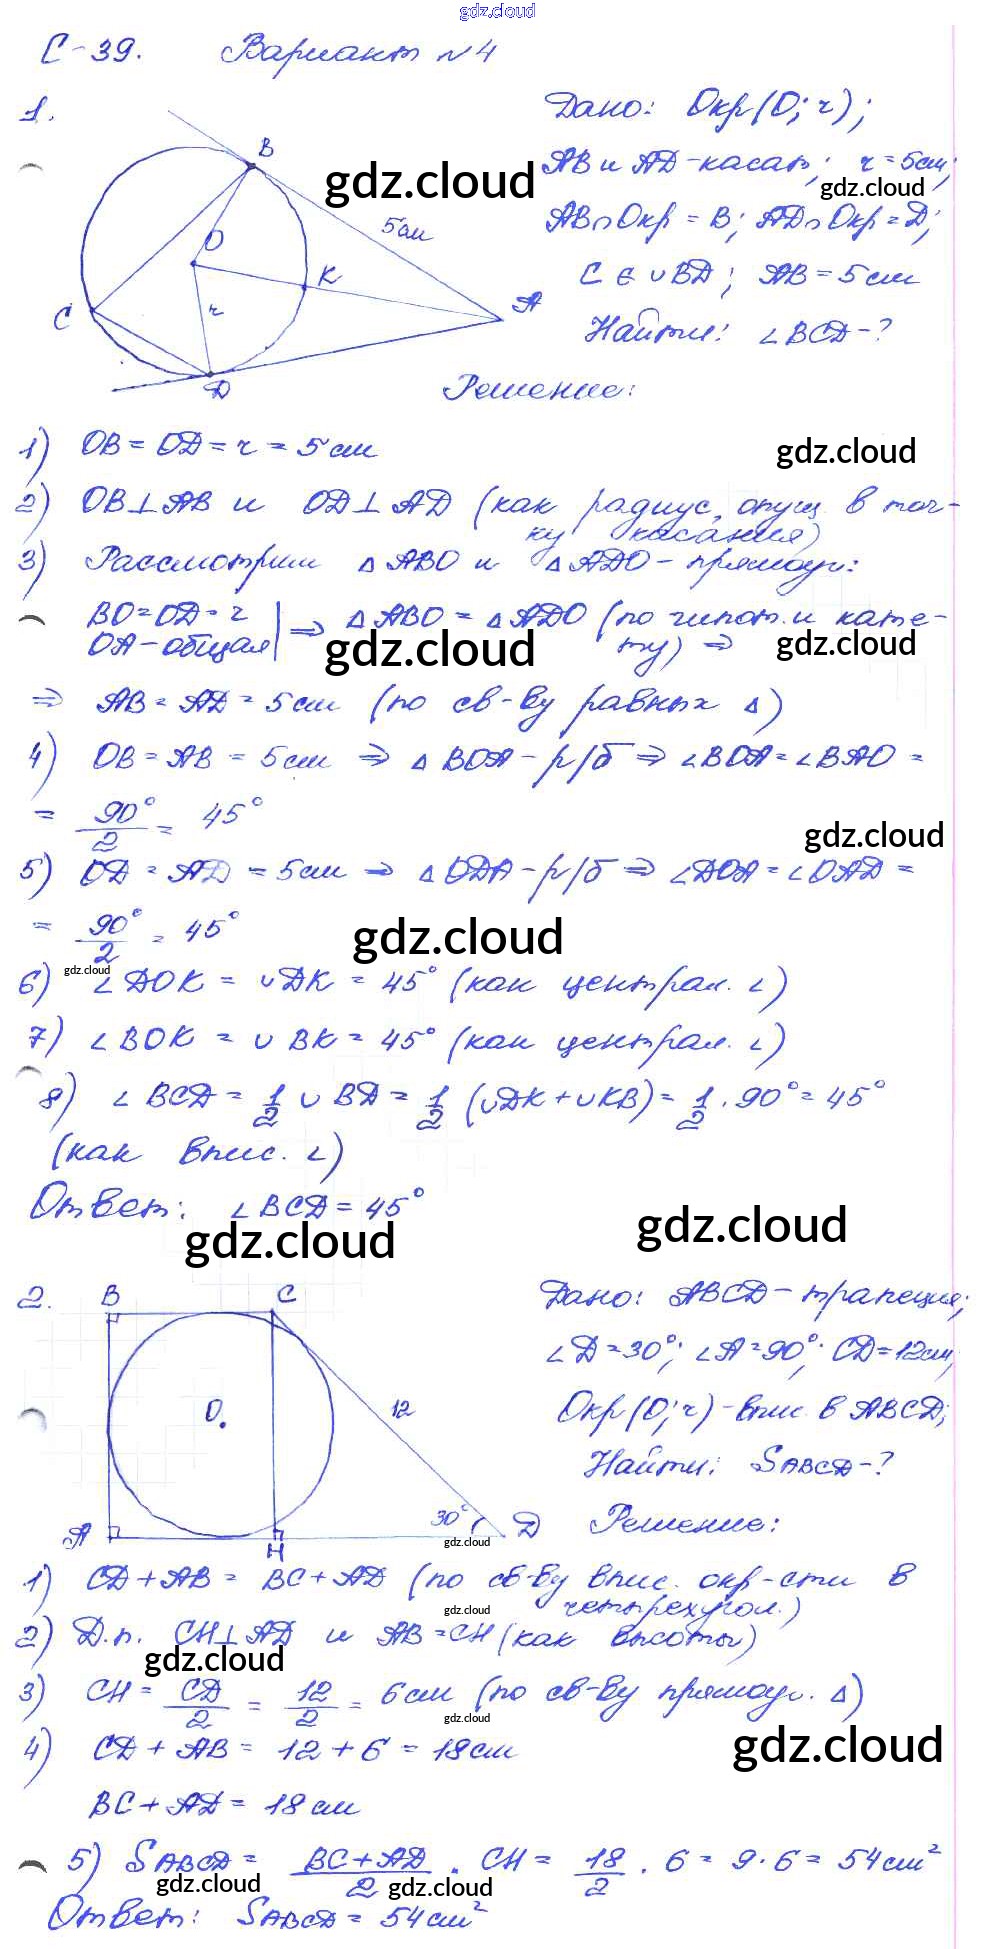 gdz.cloud
С-39. Вариант №4
1.
B
O
5см
K
r
A
C
D
Дано: Окр(O; r);
AB и AD-касат; r=5см;
AB∩Окр=B; AD∩Окр=D;
C ∈ ∪BD; AB=5см
Найти: ∠BCD-?
Решение:
gdz.cloud
gdz.cloud
1) OB=OD=r=5см
gdz.cloud
2) OB⊥AB и OD⊥AD (как радиус, опущ. в точ-
ку касания)
3) Рассмотрим △ABO и △ADO-прямоуг:
BO=OD=r
OA-общая | ⇒ △ABO = △ADO (по гипот. и кате-
ту) ⇒
gdz.cloud
gdz.cloud
⇒ AB=AD=5см (по св-ву равных △)
4) OB=AB=5см ⇒ △BOA-р/б ⇒ ∠BOA=∠BAO=
= 90°/2 = 45°
gdz.cloud
5) OD=AD=5см ⇒ △ODA-р/б ⇒ ∠DOA=∠OAD=
= 90°/2 = 45°
gdz.cloud
gdz.cloud
6) ∠DOK = ∪DK = 45° (как централ. ∠)
7) ∠BOK = ∪BK = 45° (как централ. ∠)
8) ∠BCD = 1/2 ∪BD = 1/2 (∪DK+∪KB) = 1/2 · 90° = 45°
(как впис. ∠)
Ответ: ∠BCD = 45°
gdz.cloud
gdz.cloud
2.
B
C
O
12
30°
A
H
D
Дано: ABCD-трапеция;
∠D=30°; ∠A=90°; CD=12см;
Окр(O; r)-впис. в ABCD;
Найти: SABCD-?
Решение:
gdz.cloud
1) CD+AB = BC+AD (по св-ву впис. окр-сти в
четырехугол.)
gdz.cloud
2) Д.п. CH⊥AD и AB=CH (как высоты)
gdz.cloud
3) CH = CD/2 = 12/2 = 6см (по св-ву прямоуг. △)
gdz.cloud
4) CD+AB = 12+6 = 18см
gdz.cloud
BC+AD = 18см
5) SABCD = BC+AD/2 · CH = 18/2 · 6 = 9·6 = 54см²
gdz.cloud
gdz.cloud
Ответ: SABCD = 54см²